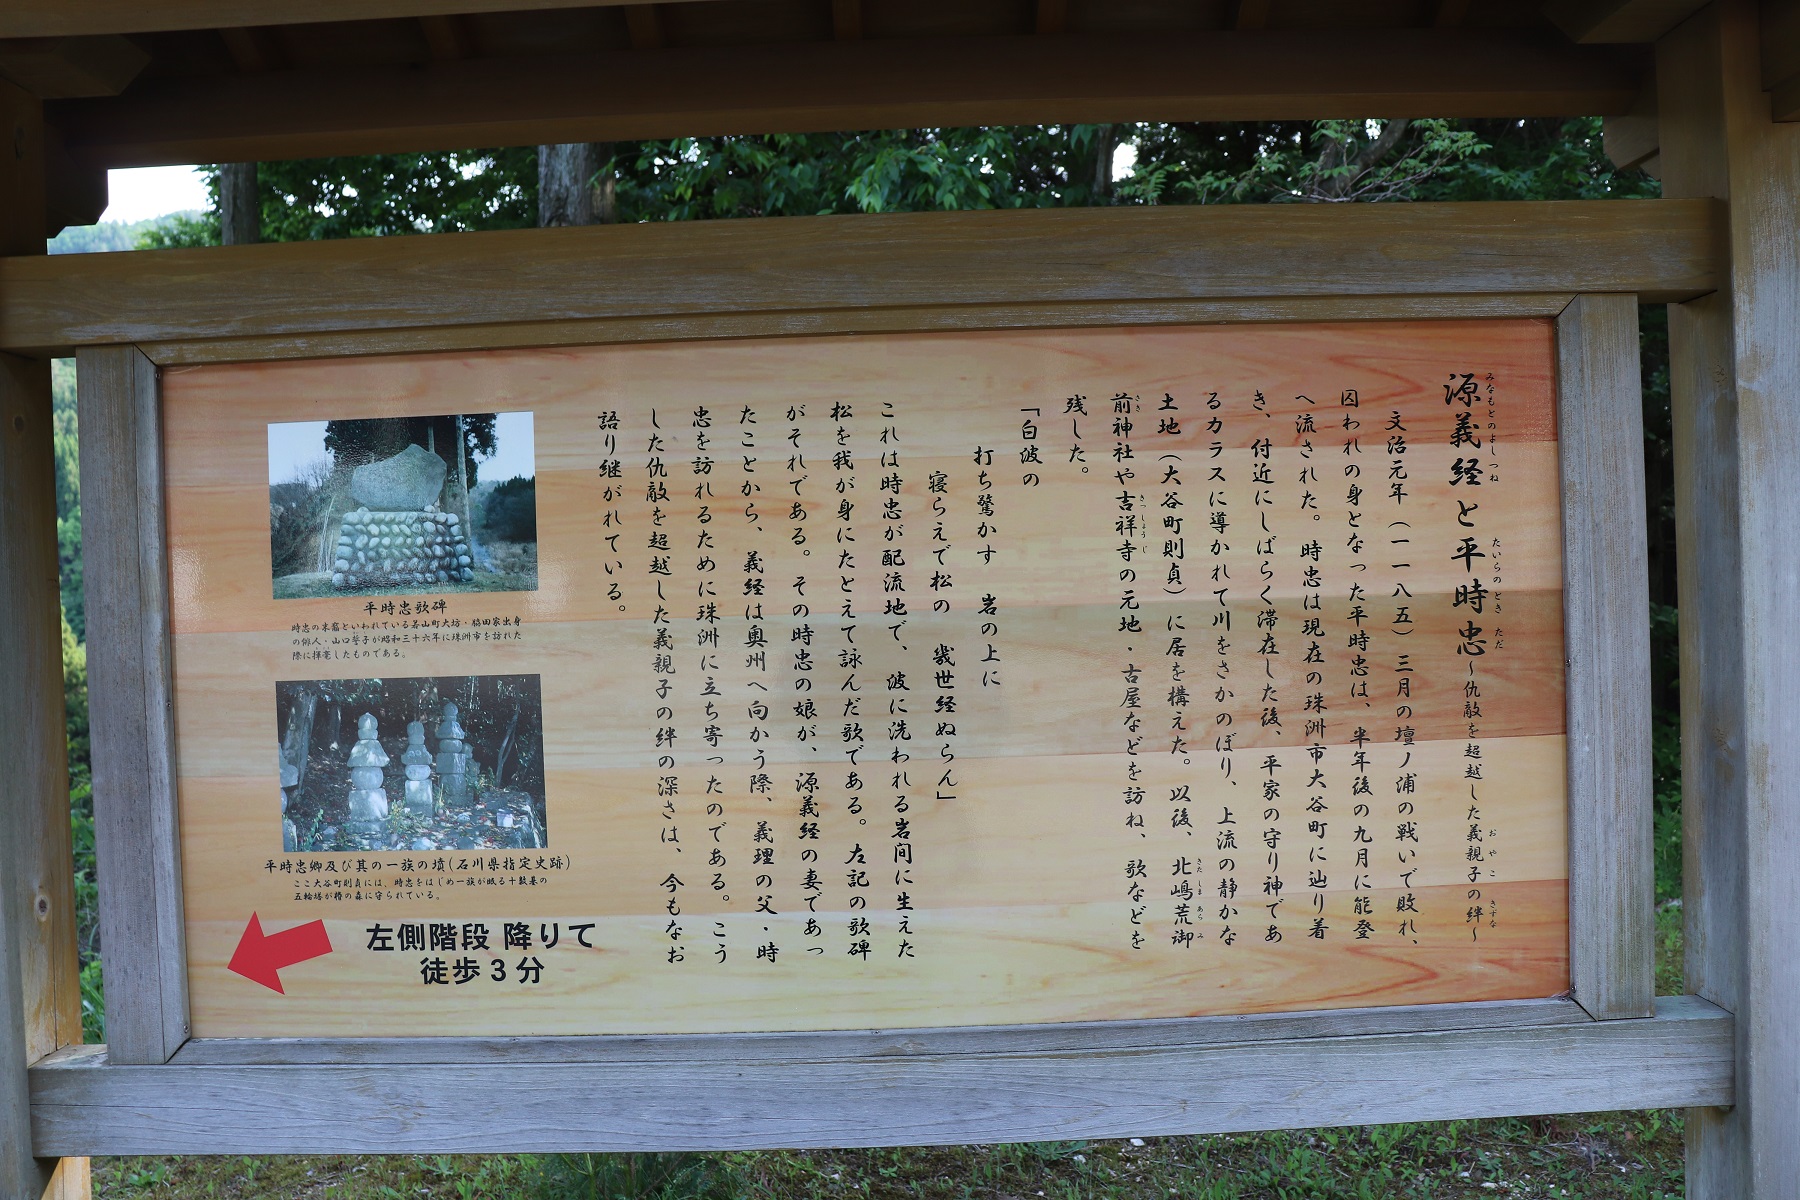 源義経と平時忠～仇敵を超越した義親子の絆～
みなもとのよしつね たいらのときただ おやこ きずな
文治元年（一一八五）三月の壇ノ浦の戦いで敗れ、
囚われの身となった平時忠は、半年後の九月に能登
へ流された。時忠は現在の珠洲市大谷町に辿り着
き、付近にしばらく滞在した後、平家の守り神であ
るカラスに導かれて川をさかのぼり、上流の静かな
土地（大谷町則貞）に居を構えた。以後、北嶋荒御
きたしまあらみ
前神社や吉祥寺の元地・古屋などを訪ね、歌などを
さき きっしょうじ
残した。
「白波の
打ち驚かす 岩の上に
寝らえで松の 幾世経ぬらん」
これは時忠が配流地で、波に洗われる岩間に生えた
松を我が身にたとえて詠んだ歌である。左記の歌碑
がそれである。その時忠の娘が、源義経の妻であっ
たことから、義経は奥州へ向かう際、義理の父・時
忠を訪れるために珠洲に立ち寄ったのである。こう
した仇敵を超越した義親子の絆の深さは、今もなお
語り継がれている。
平時忠歌碑
時忠の末裔といわれている若山町大坊・脇田家出身
の俳人・山口誓子が昭和三十六年に珠洲市を訪れた
際に揮毫したものである。
平時忠卿及び其の一族の墳（石川県指定史跡）
ここ大谷町則貞には、時忠をはじめ一族が眠る十数基の
五輪塔が椿の森に守られている。
左側階段 降りて
徒歩3分